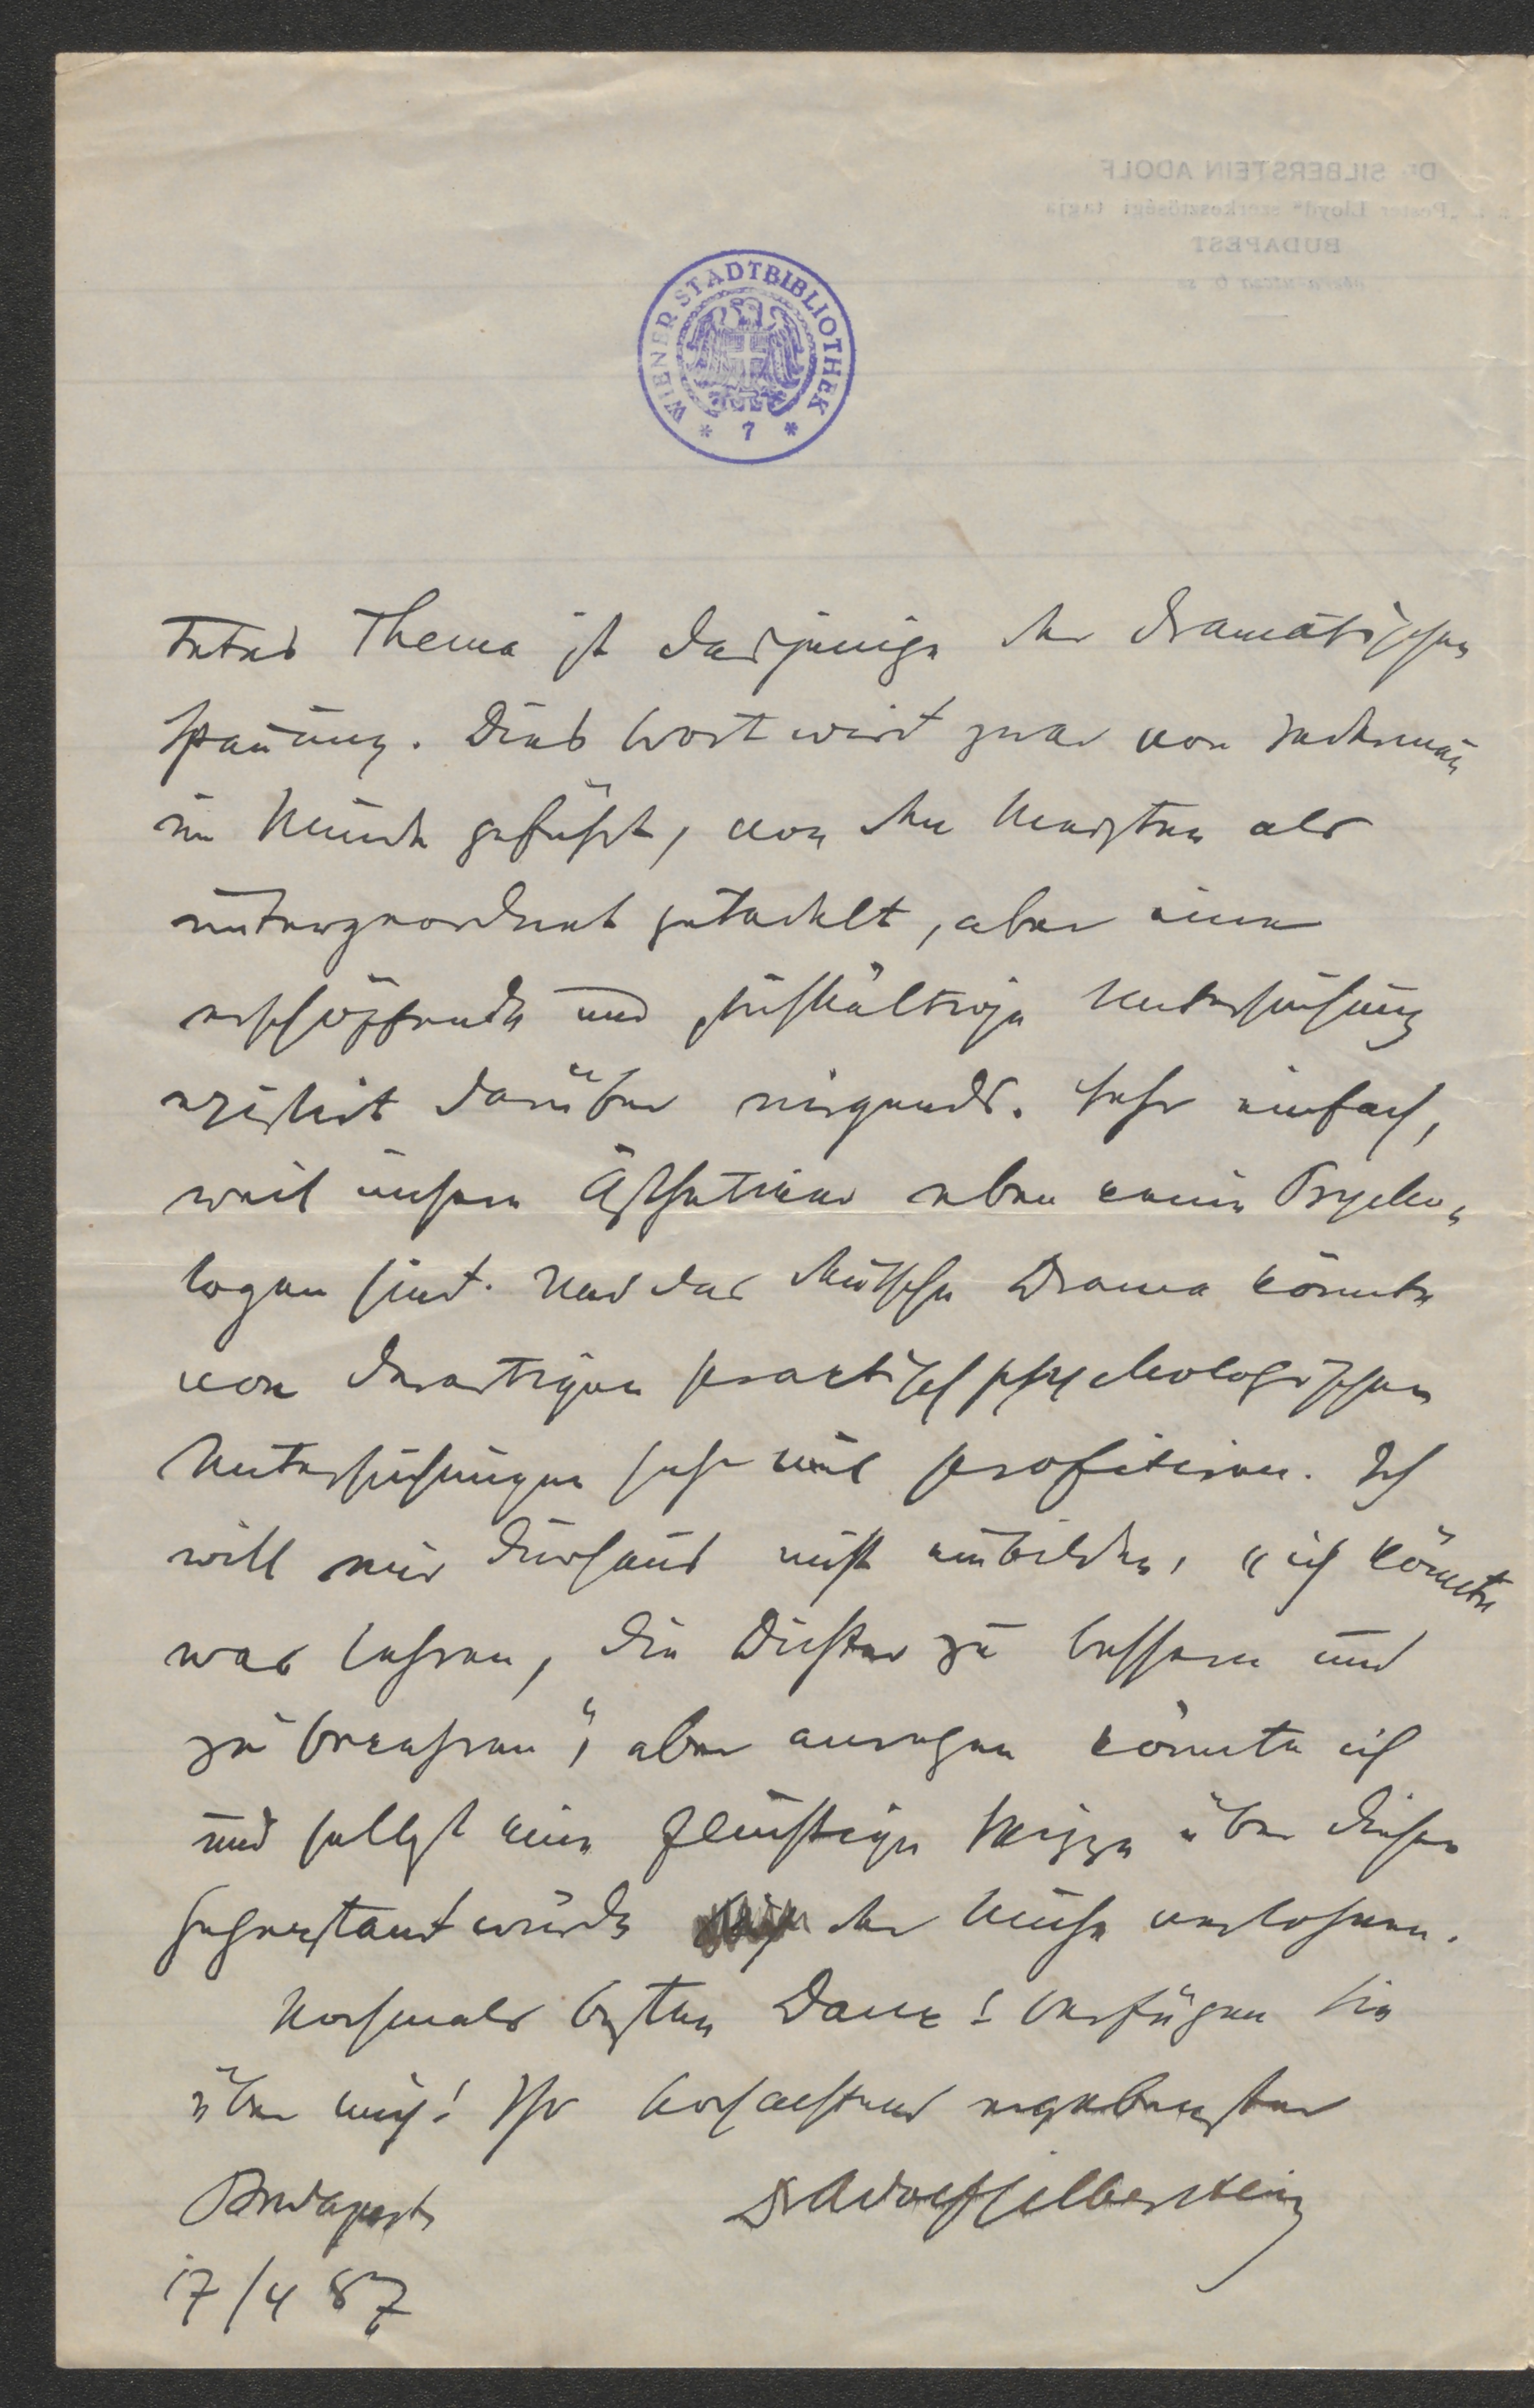 WIENER STADTBIBLIOTHEK
* 7 *
Dr. SILBERSTEIN ADOLF
„Pester Lloyd“ szerkesztőségi tagja
BUDAPEST
tetes Thema ist dasjenige der dramatischen
Spannung. Dies Wort wird zwar von Jederman̄
im Munde geführt, von den Meisten als
untergeordnet getadelt, aber eine
erschöpfende und stichhältige Untersuchung
existirt darüber nirgends. Sehr einfach,
weil unsere Ästhetiker eben keine Psycho-
logen sind. Und das deutsche Drama könnte
von derartigen practisch psychologischen
Untersuchungen sehr viel profitiren. Ich
will mir durchaus nicht einbilden, „ich könnte
was lehren, die Dichter zu bessern und
zu bekehren“, aber anregen könnte ich
und selbst eine flüchtige Skizze über diesen
Gegenstand würde der Mühe verlohnen.
Nochmals besten Dank! Verfügen Sie
über mich! Ihr hochachtend ergebenster
Budapest Dr Adolf Silberstein
17/4 87